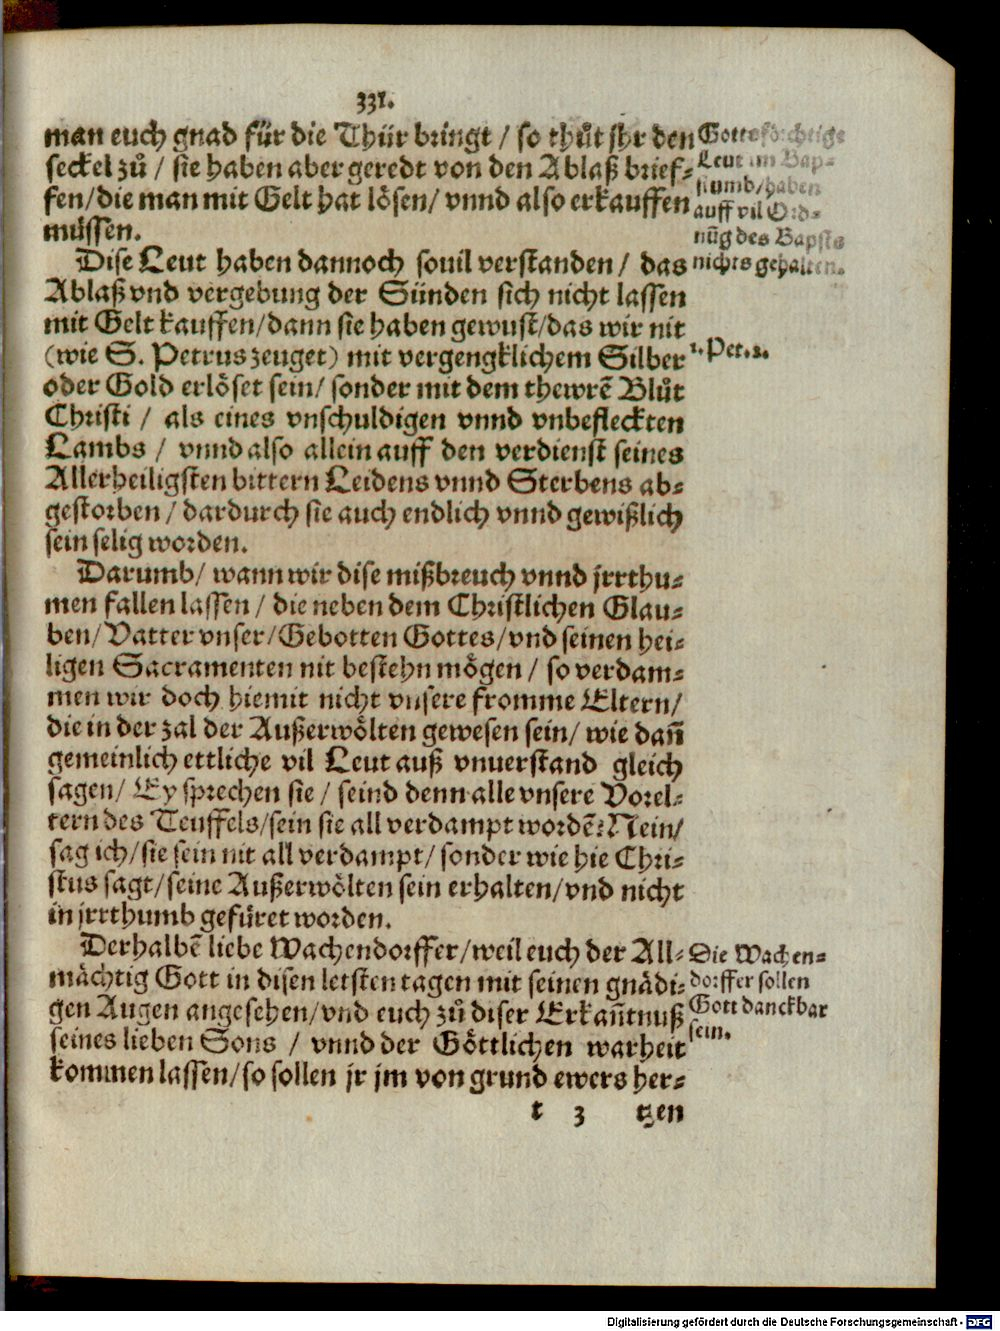 331.
man euch gnad für die Thür bringt / so thůt jhr den
seckel zů / sie haben aber geredt von den Ablaß brief-
fen/die man mit Gelt hat lösen/ vnnd also erkauffen
müssen.
Gottsförchtige
Leut im Bap-
stumb/haben
auff vil Ord-
nũg des Bapsts
nichts gehalten.
Dise Leut haben dannoch souil verstanden / das
Ablaß vnd vergebung der Sünden sich nicht lassen
mit Gelt kauffen/dann sie haben gewust/das wir nit
(wie S. Petrus zeuget) mit vergengklichem Silber
1. Pet. 1.
oder Gold erlöset sein/ sonder mit dem thewrẽ Blůt
Christi / als eines vnschuldigen vnnd vnbefleckten
Lambs / vnnd also allein auff den verdienst seines
Allerheiligsten bittern Leidens vnnd Sterbens ab-
gestorben / dardurch sie auch endlich vnnd gewißlich
sein selig worden.
Darumb/ wann wir dise mißbreuch vnnd jrrthu-
men fallen lassen / die neben dem Christlichen Glau-
ben/Vatter vnser/Gebotten Gottes/vnd seinen hei-
ligen Sacramenten nit bestehn mögen / so verdam-
men wir doch hiemit nicht vnsere fromme Eltern/
die in der zal der Außerwölten gewesen sein/ wie dañ
gemeinlich ettliche vil Leut auß vnuerstand gleich
sagen/ Ey sprechen sie / seind denn alle vnsere Vorel-
tern des Teuffels/sein sie all verdampt wordẽ? Nein/
sag ich/sie sein nit all verdampt/ sonder wie hie Chri-
stus sagt/seine Außerwölten sein erhalten/vnd nicht
in jrrthumb gefüret worden.
Derhalbẽ liebe Wachendorffer/weil euch der All-
mächtig Gott in disen letsten tagen mit seinen gnädi-
gen Augen angesehen/vnd euch zů diser Erkañtnuß
seines lieben Sons / vnnd der Göttlichen warheit
kommen lassen/so sollen jr jm von grund ewers her-
Die Wachen-
dorffer sollen
Gott danckbar
sein.
t 3 tzen
Digitalisierung gefördert durch die Deutsche Forschungsgemeinschaft - DFG